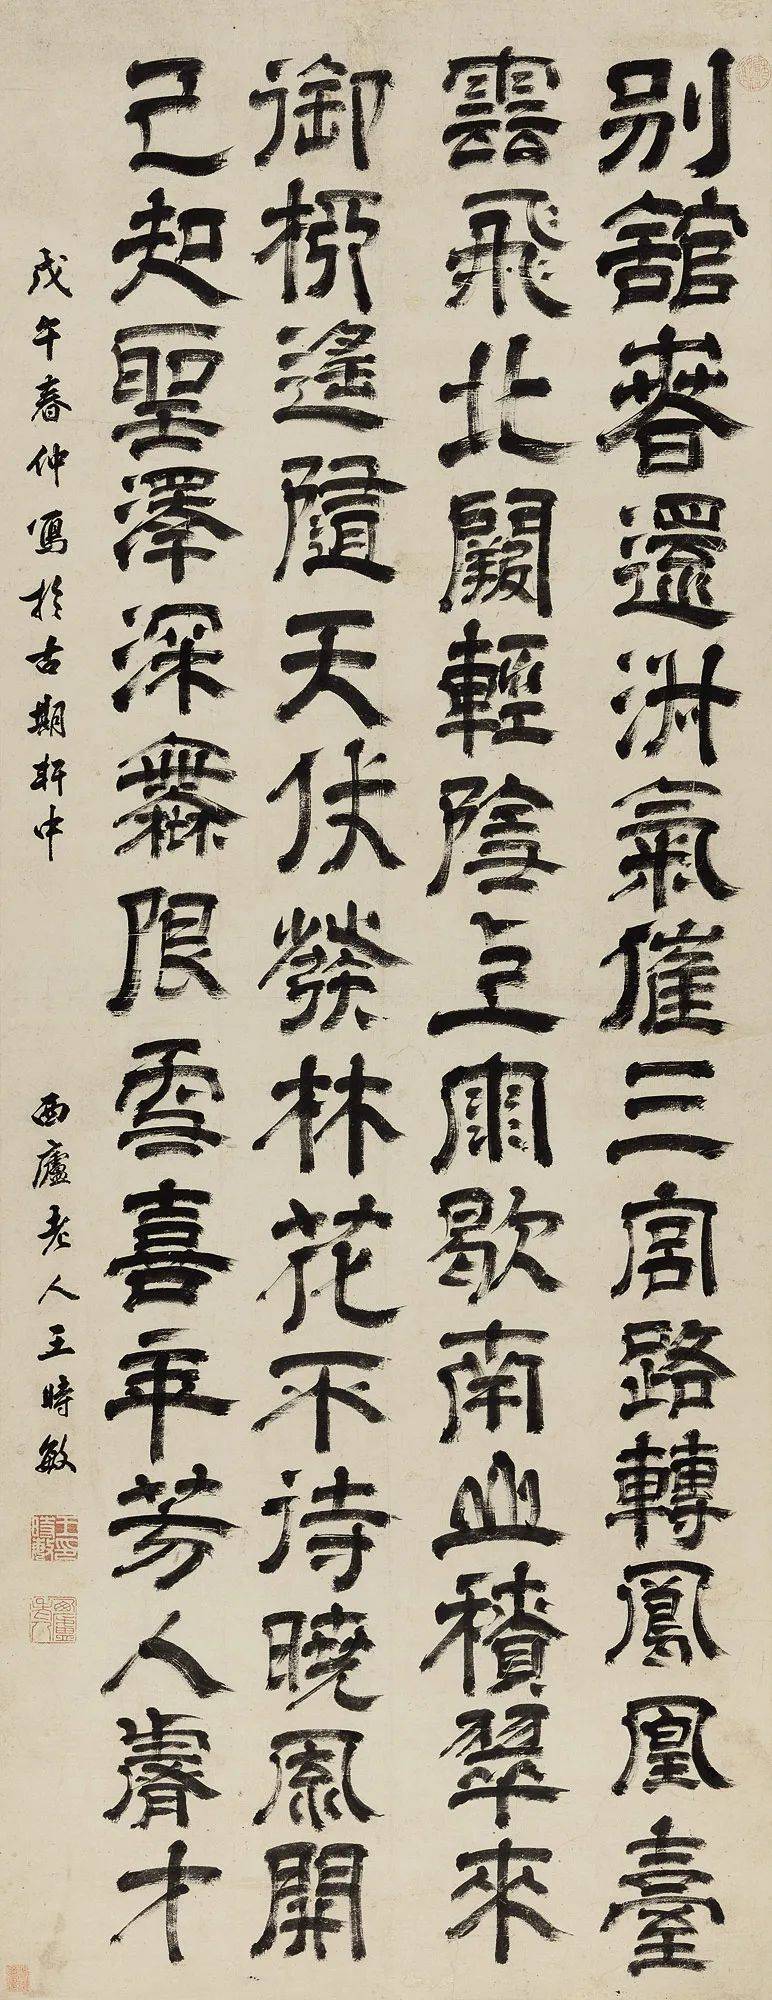 別館春還淑氣催三宮路轉鳳凰臺
雲飛北闕輕陰雨歇南山積翠來
御柳遙隨天仗發林花不待曉風開
已知聖澤深無限雪喜年芳入睿才
戊午春仲寫於古期軒中
西廬老人王時敏
王時敏印
西廬老人